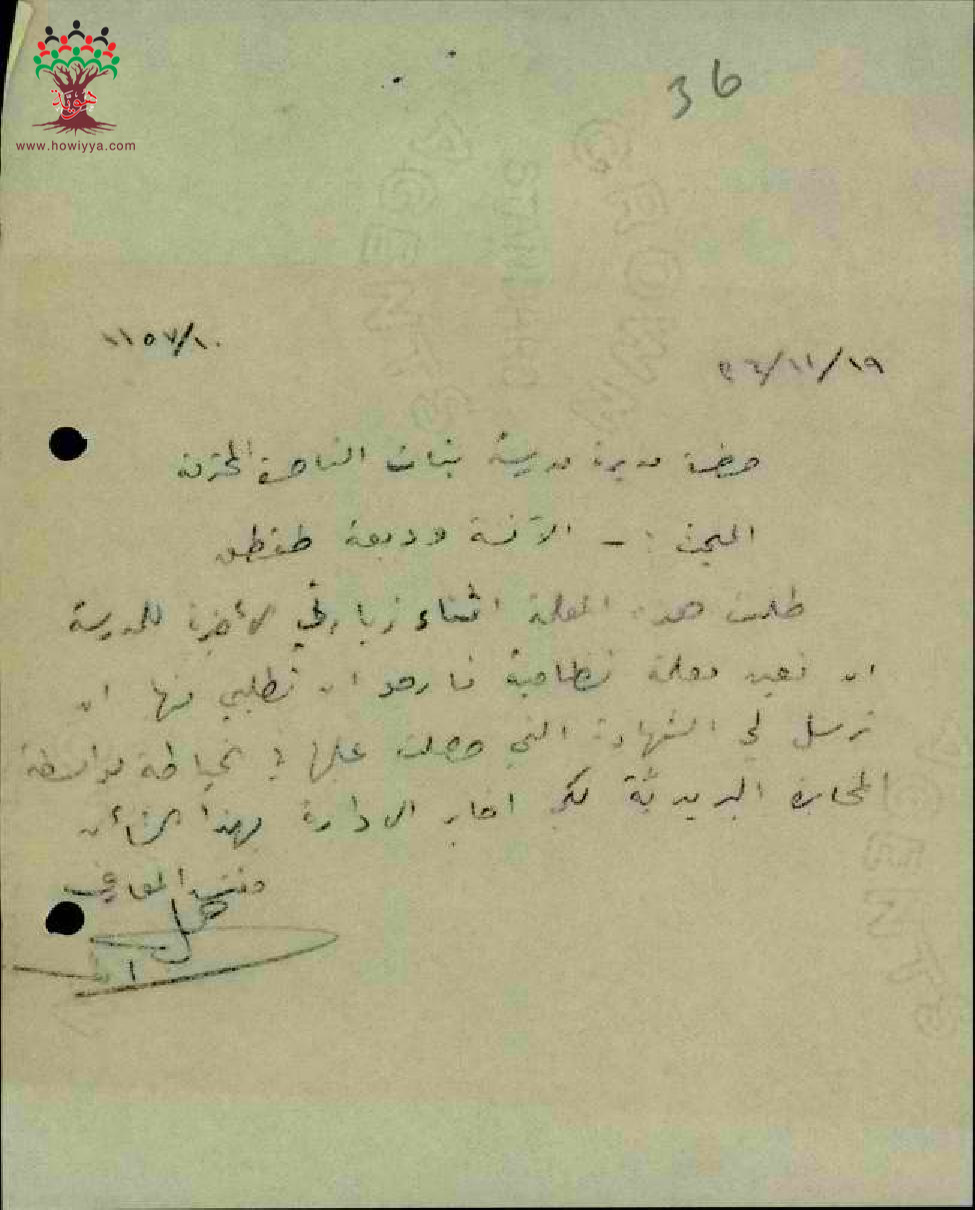 هوية
www.howiyya.com
36
١١٥٧/١٠
١٩/١١/٤٦
حضرة مديرة مدرسة بنات الناصرة المحترمة
المبحث :ـ الآنسة وديعة طقطق
طلبت هذه المعلمة اثناء زيارتي الأخيرة للمدرسة
ان تعين معلمة نظامية فارجو ان تطلبي منها ان
ترسل لي الشهادة التي حصلت عليها في الخياطة بواسطة
المخابرة البريدية لكي اخابر الادارة بهذا الشأن
مفتش المعارف